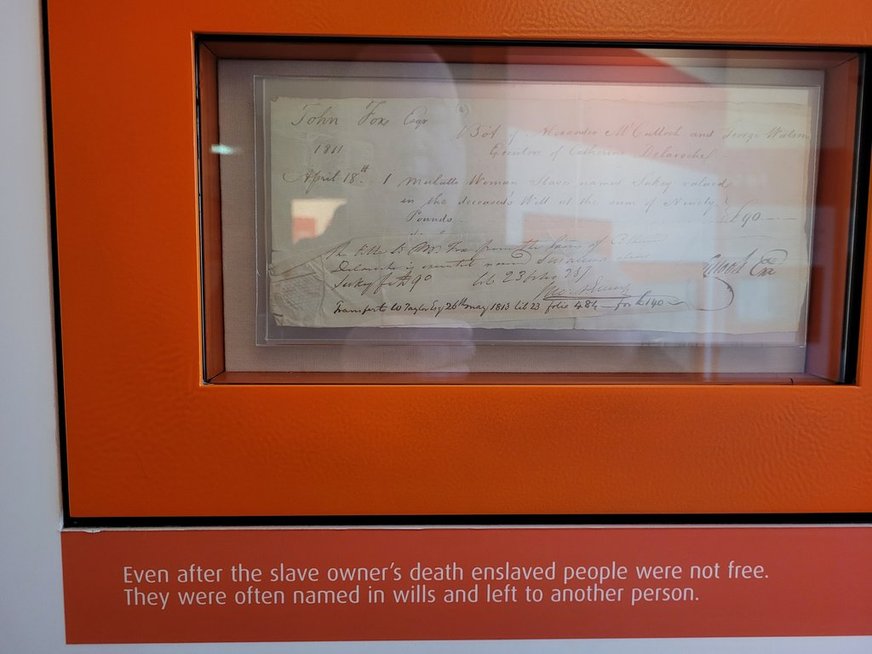 John Fox Esqr
Bot of Alexander McCulloch and George Watson
1811
Executors of Catherine Delaroche
April 18th 1 Mulatto Woman Slave named Sukey valued
in the deceased's Will at the sum of Ninety
Pounds £90
Mr Fox from the
Delaroche
Sukey for £90 lib 23 folio
Transfert to Taylor Esq 26th may 1813 lib 23 folio 484 for £140
Even after the slave owner's death enslaved people were not free.
They were often named in wills and left to another person.